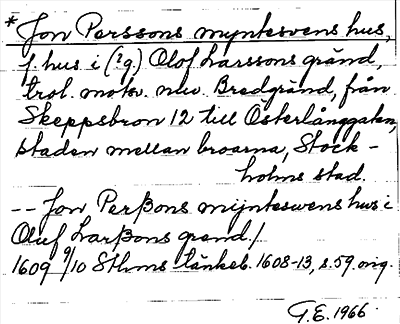 * Jon Perssons myntesvens hus,
f. hus i (?g.) Olof Larssons gränd,
trol. motsv. nuv. Bredgränd, från
Skeppsbron 12 till Österlånggatan,
staden mellan broarna, Stock-
holms stad.
-- Jon Perßons mijnteswens hus i
Oluf Larßons grend./
1609 9/10 Sthms tänkeb. 1608-13, s. 59. orig.
G.E. 1966.